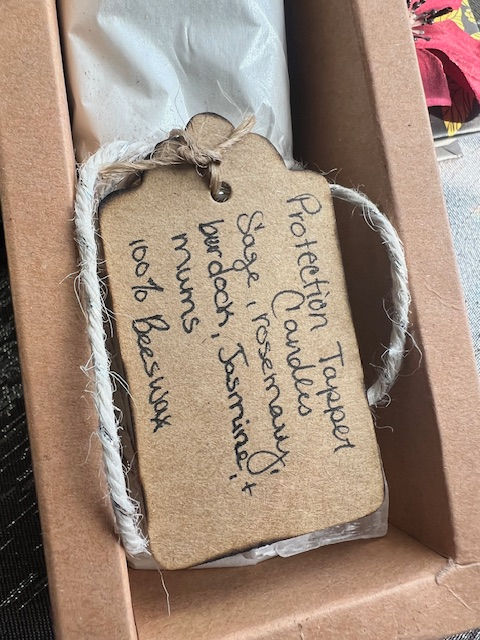 Protection Tapper
Candles
Sage, rosemary,
burdock, Jasmine, +
mums
100% Beeswax